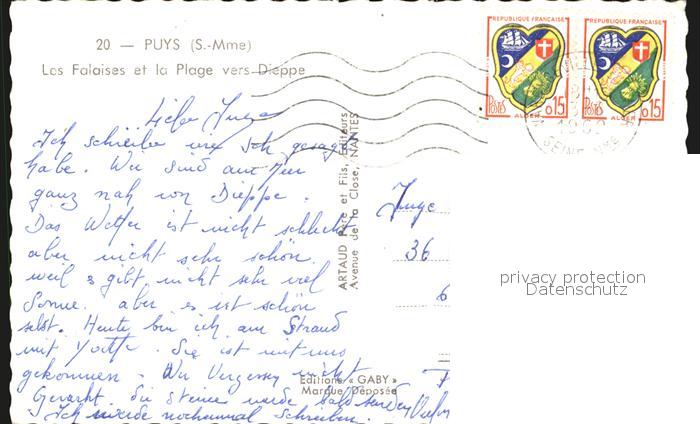 20. — PUYS (S.-Mme)
Les Falaises et la Plage vers Dieppe
REPUBLIQUE FRANÇAISE
POSTES 0,15
ALGER
REPUBLIQUE FRANÇAISE
POSTES 0,15
ALGER
Liebe Inge
Ich schreibe wie ich gesagt
habe. Wir sind am Meer
ganz nah von Dieppe.
Das Wetter ist nicht schlecht
aber nicht sehr schön.
weil es gibt nicht sehr viel
Sonne. aber es ist schön
selbst. Heute bin ich am Strand
mit Yvette. Sie ist mit uns
gekommen. Wir Vergessen nicht
Gerarht. die Steine werde bald
Ich werde nochmal Schreiben.
ARTAUD Père et Fils, Editeurs
Avenue de la Close, NANTES
Editions « GABY »
Marque Déposée
Inge
36
6
privacy protection
Datenschutz